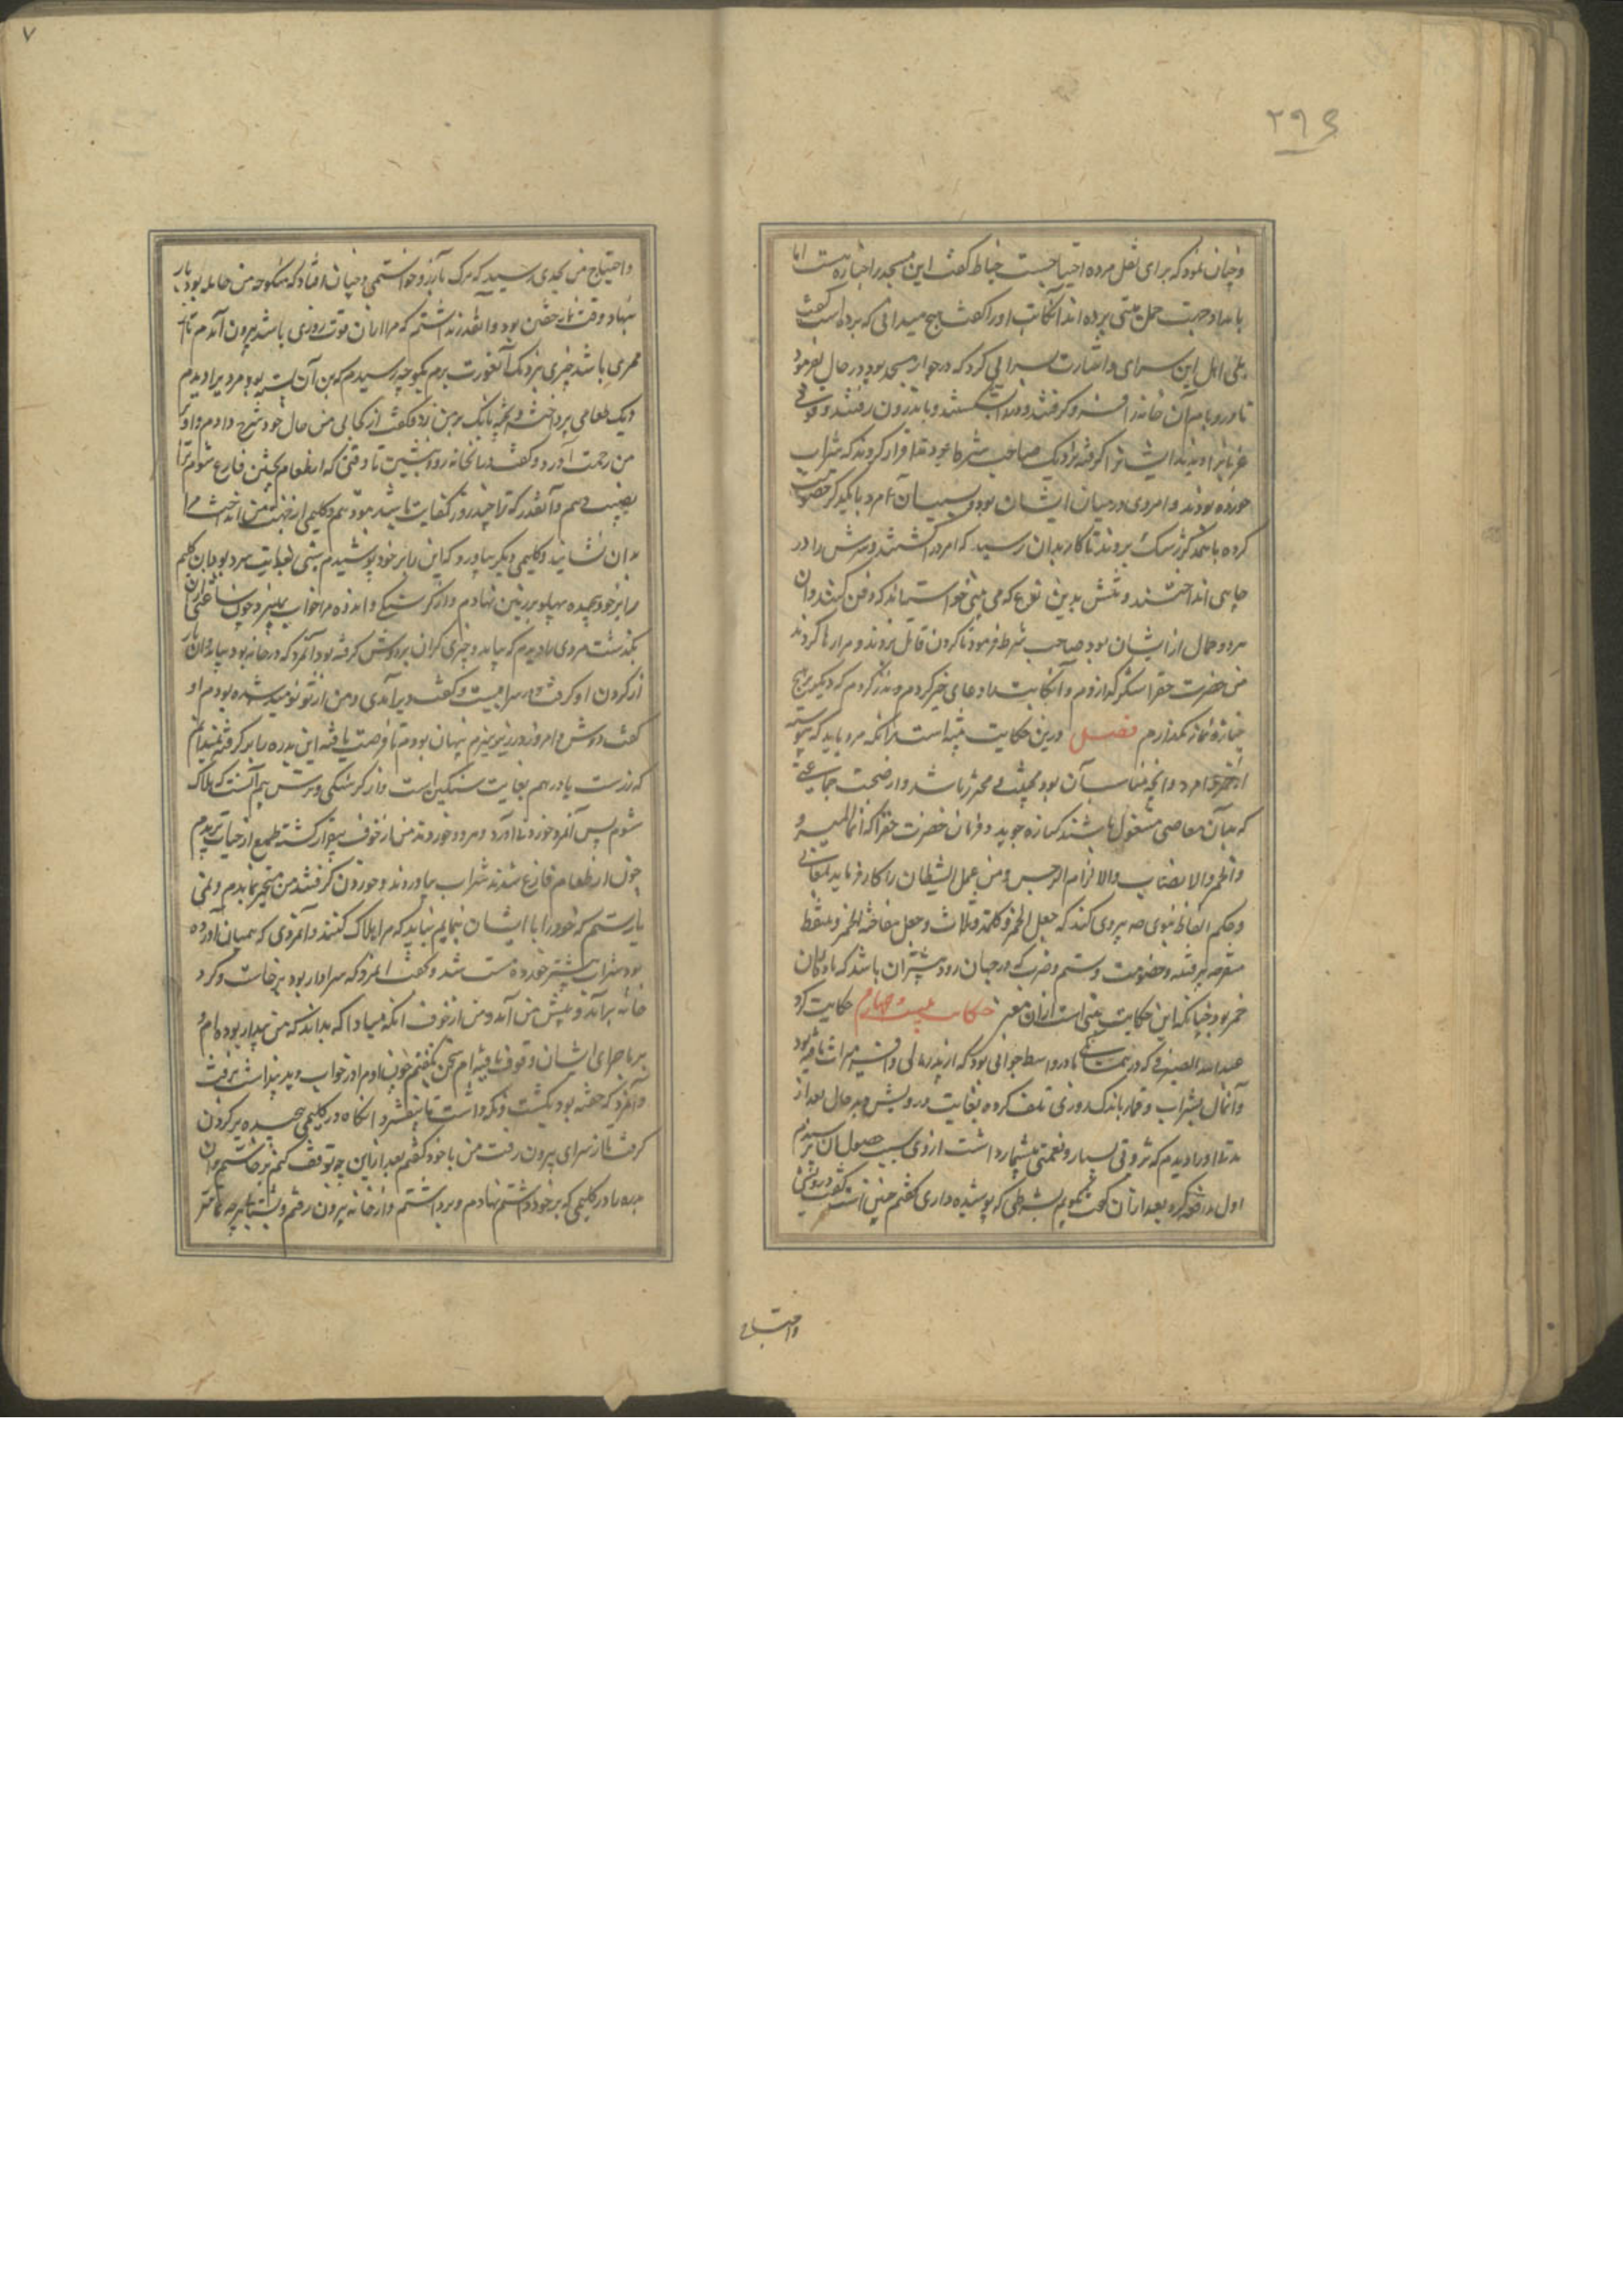 ۲۹۶
و چنان نمود که برای نقل مرده احتیاجست خیاط گفت این مسجد را جنازه هست اما
بامداد جهت حمل میتی برده اند آنکاتب او را گفت هیچ میدانی که برده است گفت
بلی اهل این سرای و اشارت بسرایی کرد که در جوار مسجد بود در حال بفرمود
تا در و بام آن خانه را فرو گرفتند و در را بشکستند و باندرون رفتند و قومی
عزبانرا دیدند ایشانرا گرفته نزدیک صاحب شرط بردند اقرار کردند که شراب
خورده بودند و امردی در میان ایشان بود و بسبب آن امرد با یکدیگر خصومت
کرده با سمد کور سبک بردند تا کار بدان رسید که امرد را کشتند و سرش را در
چاهی انداختند و تنش بدین نوع که می بینی خواستند که دفن کنند و آن
مرد حمال از ایشان بود صاحب شرط فرمود تا گردن قاتل بزدند و مرا رها کردند
من حضرت حق را شکر گذاردم و آنکاتب را دعای خیر کردم و نذر کردم که دیگر بر هیچ
جنازه نماز نگذارم فصل درین حکایت تنبیه است بدانکه مرد باید که پیوسته
از خمر و امرد و آنچه مناسب آن بود مجتنب و محترز باشد و از صحبت جماعتی
که بدان معاصی مشغول باشند کناره جوید و فرمان حضرت حق را که انما المیسر و
والخمر والانصاب والازلام الرجس و من عمل الشیطان را کار فرماید
و بحکم الفاظ نبوی صه پیروی کند که جعل الخمر و کلمته و ثلاث و جعل مفاتحه الخمر و ملتقط
متفرعه هر فتنه و خصومت و ستم و ضرب که در جهان رود بیشتر آن باشد که مادر آن
خمر بود چنانکه این حکایت مبنی است از آن معنی حکایت بیست و چهارم حکایت کرد
عبدالله الصیرفی که در همسایگی ما در واسط جوانی بود که از پدر مالی وافر میراث یافته بود
و آنمال بشراب و قمار باندک روزی تلف کرده بغایت درویش و بد حال بعد از
مدتی او را دیدم که ثروتی بسیار و نعمتی بیشمار داشت از وی سبب حصول آن پرسیدم
اول مدافعه کرد بعد از آن گفت بگویم بشرطی که پوشیده داری گفتم چنین است گفت درویشی
واحتیاج
۷
و احتیاج من بحدی رسید که مرگ بآرزو خواستمی و چنان افتاد که منکوحه من حامله بود بار
بنهاد وقت نماز خفتن بود و آنقدر نداشتم که مرا از آن قوت روزی باشد بیرون آمدم تا از
ممری باشد چیزی نزدیک آنعورت برم بکوچه رسیدم که بن آن بسته بود مردیرا دیدم
دیگ طعامی پرداخت و پخته بانگ بر من زد و گفت از کجایی من حال خود شرح دادم و او بر
من رحمت آورد و گفت در آنخانه رو و بنشین تا وقتی که از طعام پختن فارغ شوم ترا
نصیب دهم و آنقدر که ترا چند روز کفایت باشد بتو دهم و گلیمی از جهت من انداخت مرا
بدان نشاند و گلیمی دیگر بیاورد که این را بر خود پوشیدم شبی بغایت سرد بود بدان گلیم
را بر خود پیچیده پهلو بر زمین نهادم و از گرسنگی و اندوه مرا خواب نمیبرد چون ساعتی از آن
بگذشت مردی را دیدم که بیامد و چیزی گران بر دوش گرفته بود آنمرد که در خانه بود بیامد و آن بار
از گردن او گرفت و در سرا ببست و گفت دیر آمدی و من از تو نومید شده بودم او
گفت دوش و امروز در زیر هیزم پنهان بودم تا فرصت یافته این بدره را برگرفتم نمیدانم
که زرست یا درهم بغایت سنگین است و از گرسنگی و ترس بیم آنست که هلاک
شوم پس آنمرد خوردنی آورد و هر دو خوردند من از خوف بیقرار گشته طمع از حیات ببریدم
چون از طعام فارغ شدند شراب بیاوردند و خوردن گرفتند من متحیر بماندم و نمی
یارستم که خود را با ایشان نمایم نباید که مرا هلاک کنند و آنمردی که همیان آورده
بود شراب بیشتر خورده مست شد و گفت آنمرد که سرا دار بود برخاست و گرد
خانه برآمد و پیش من آمد و من از خوف آنکه مبادا که بداند که من بیدار بوده ام و
بر ماجرای ایشان وقوف یافته ام سخن نگفتم چون او مرا در خواب دید پنداشت برفت
و آنمرد که خفته بود بکشت و نگه داشت تا بیفشرد آنگاه در گلیمی پیچیده بر گردن
گرفت تا از سرای بیرون رفت من با خود گفتم بعد از این چه توقف کنم برخاستم و آن
بدره را در گلیمی که بر خود داشتم نهادم و برداشتم و از خانه بیرون رفتم و بشتاب هر چه تمامتر